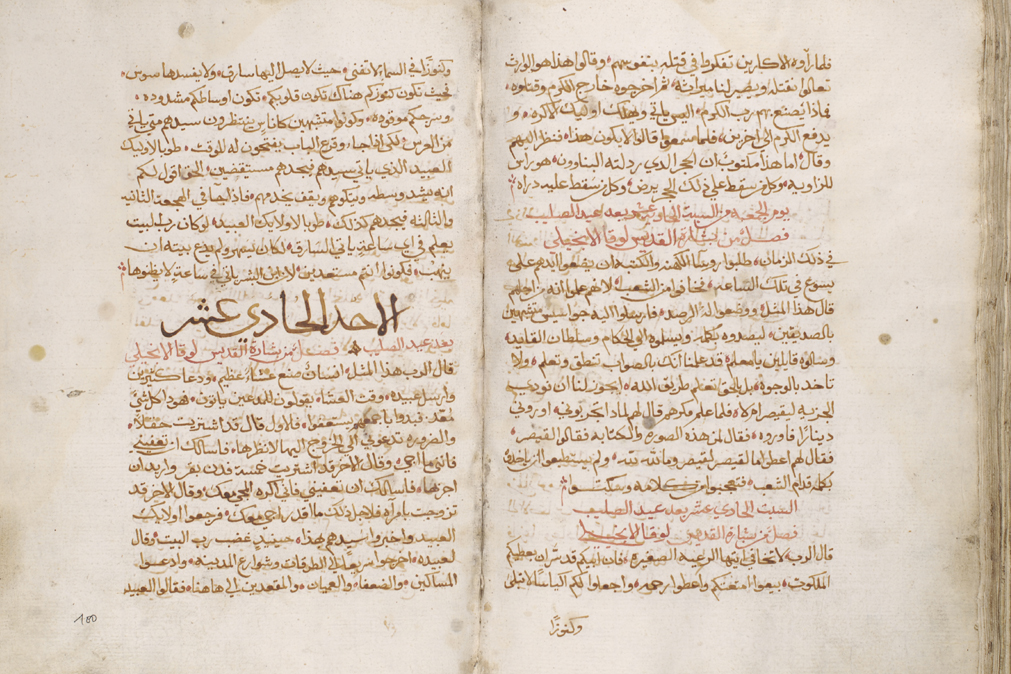 فلما رآوه الاكارين تفكروا في قتله بنفوسهم وقالوا هذا هو الوارث
تعالوا نقتله ويصير لنا ميراثه ثم اخرجوه خارج الكرم وقتلوه
فماذا يصنع بهم رب الكرم اليس ياتي ويهلك اوليك الاكره و
يدفع الكرم الى اخرين فلما سمعوا قالوا لا يكون هذا فنظر اليهم
وقال اما هذا مكتوب ان الحجر الذي رذلته البناوون هو راس
للزاويه وكل من سقط على ذلك الحجر يرض وكل من سقط عليه دراه
يوم الجمعه من السبت الحادي عشر بعد عيد الصليب
فصل من بشارة القديس لوقا الانجيلي
في ذلك الزمان طلبوا روسا الكهنه والكتبه ان يضعوا ايديهم على
يسوع في تلك الساعه فخافوا من الشعب لانهم علموا انه من اجلهم
قال هذا المثل ووضعوا له الرصد فارسلوا اليه جواسيس متشبهين
بالصديقين ليصدوه بكلمه ويسلموه الى الحكام وسلطان القايد
وسالوه قايلين يا معلم قد علمنا انك بالصواب تنطق وتعلم ولا
تاخذ بالوجوه بل بالحق تعلم طريق الله ايجوز لنا ان نودي
الجزيه لقيصر ام لا فلما علم مكرهم قال لهم لماذا تجربوني اروني
دينارا فاوروه فقال لمن هذه الصوره والكتابه فقالوا لقيصر
فقال لهم اعطوا ما لقيصر لقيصر وما لله لله ولم يستطيعوا ان ياخذوه
بكلمه قدام الشعب فتعجبوا من كلامه وسكتوا
السبت الحادي عشر بعد عيد الصليب
فصل من بشارة القديس لوقا الانجيلي
قال الرب لا تخافي ايتها الرعيه الصغيره فان ابيكم قد سر ان يعطيكم
الملكوت بيعوا امتعتكم واعطوا رحمه واجعلوا لكم اكياسا لا تبلى
وكنوزا
وكنوزا في السما لا تفنى حيث لا يصل اليها سارق ولا يفسدها سوس
فحيث تكون كنوزكم هناك تكون قلوبكم تكون اوساطكم مشدوده
وسرجكم موقوده وكونوا متشبهين كاناس ينتظرون سيدهم متى ياتي
من العرس لكي اذا جا وقرع الباب يفتحون له للوقت طوبا لاوليك
العبيد الذي ياتي سيدهم فيجدهم مستيقضين الحق اقول لكم
انه يشد وسطه ويتكوهم ويقف يخدمهم فاذا جا في الهجعة الثانيه
والثالثه فيجدهم كذلك طوبا لاوليك العبيد لو كان رب البيت
يعلم في اي ساعة ياتي السارق لكان يسهر ولم يدع بيته ان
ينهب فكونوا انتم مستعدين لان ابن البشر ياتي في ساعة لا تظنوها
الاحد الحادي عشر
بعد عيد الصليب فصل من بشارة القديس لوقا الانجيلي
قال الرب هذا المثل انسان صنع عشاء عظيم ودعا كثيرين
وارسل عبيده وقت العشا يقولون للمدعين ياتون فهوذا كل شي
معد فبدوا باجمعهم يستعفوا فالاول قال قد اشتريت حقلا
والضروره تدعوني الى الخروج اليها لانظرها فاسالك ان تعفيني
فاني ما اجي وقال الاخر قد اشتريت خمسة فدن بقر واريد ان
اجربها فاسالك ان تعفيني فاني اكره المجي معك وقال الاخر قد
تزوجت بامراه فلاجل ذلك ما اقدر اجي معك فرجعوا اوليك
العبيد واخبروا سيدهم بهذا حينيذ غضب رب البيت وقال
لعبيده اخرجوا سريعا الى الطرقات وشوارع المدينه وادعوا
المساكين والضعفا والعميان والمقعدين الى هاهنا فقالوا العبيد
100